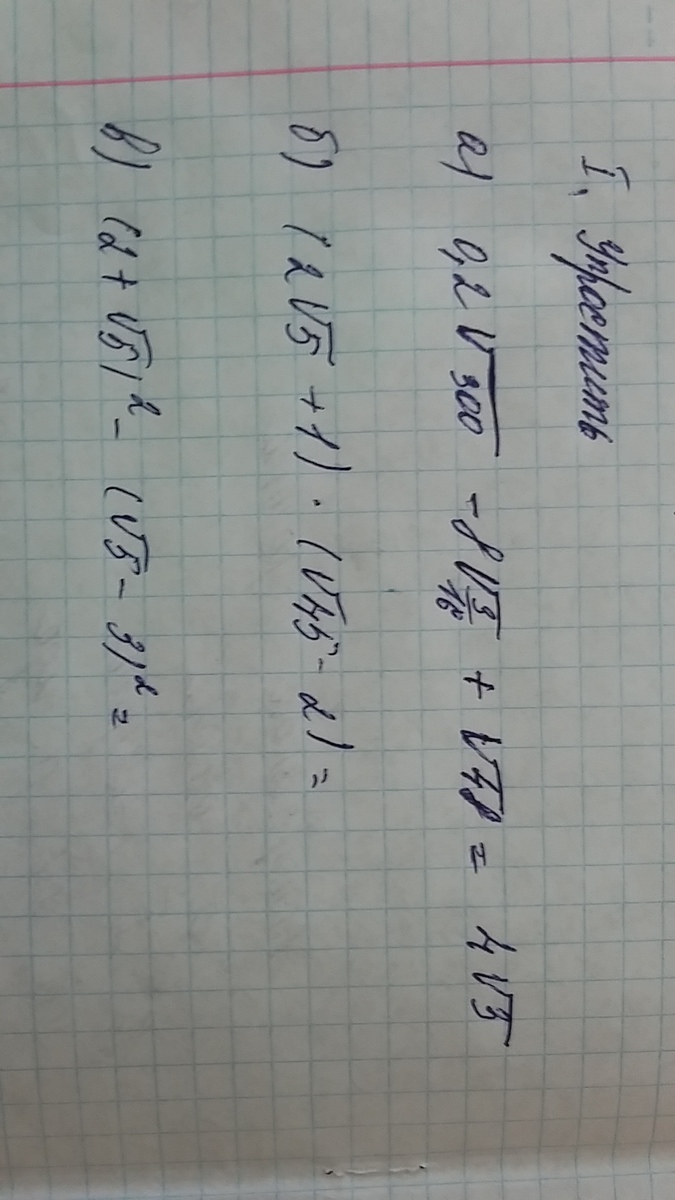 I. Упростить
а) 0,2√300 - 8√(3/16) + √48 = 4√3
б) (2√5 + 1) · (√45 - 2) =
в) (2 + √5)² - (√5 - 3)² =